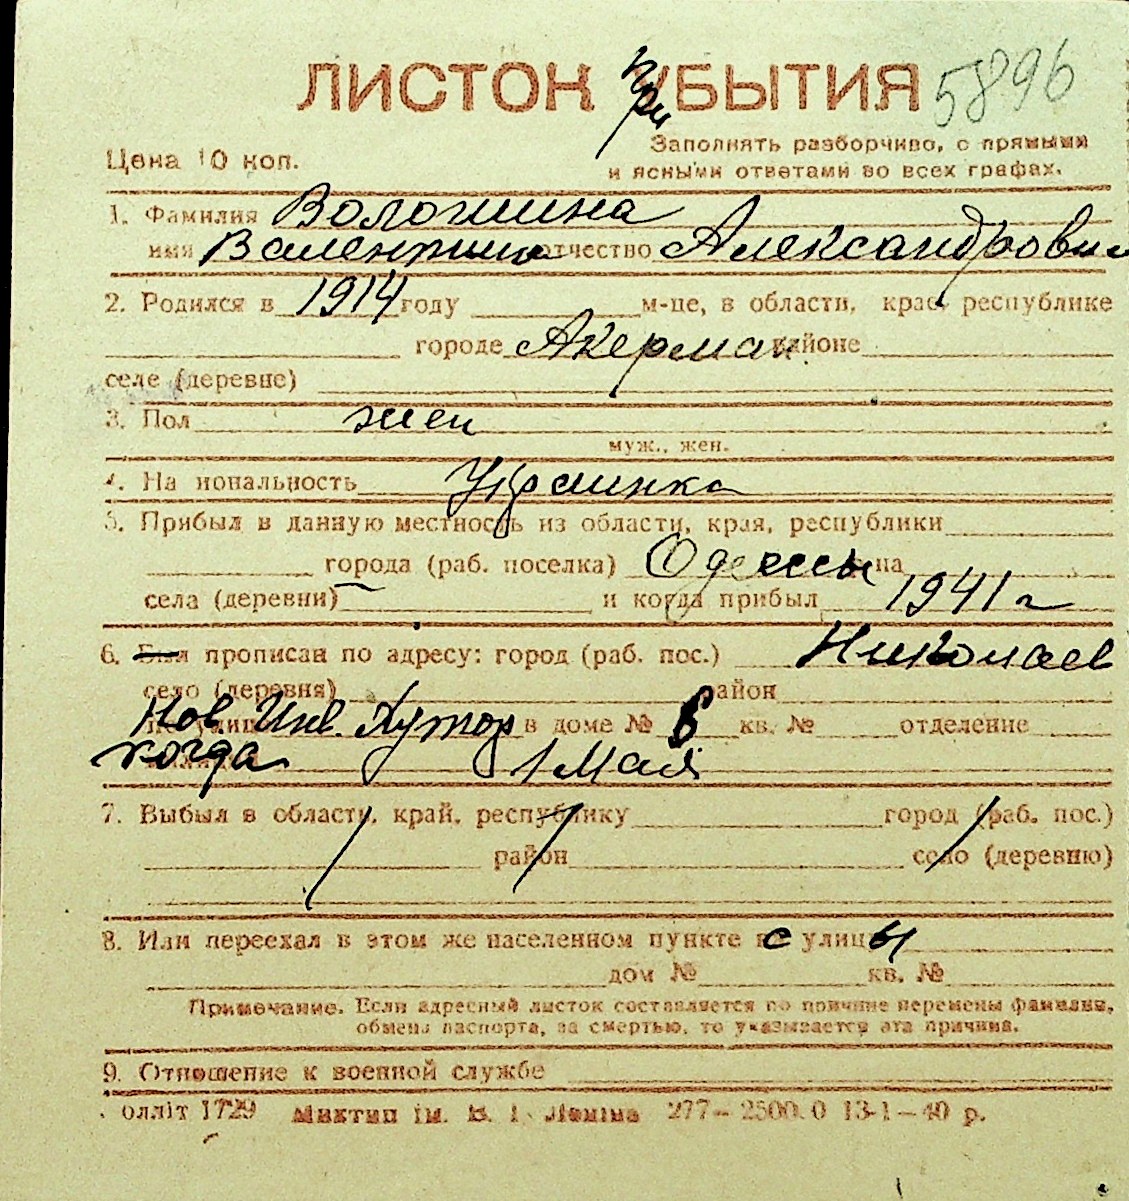 ЛИСТОК при УБЫТИЯ 5896
Цена 10 коп.
Заполнять разборчиво, с прямыми
и ясными ответами во всех графах.
1. Фамилия Волошина
имя Валентина отчество Александровна
2. Родился в 1914 году м-це, в области, крае, республике
городе Акерман районе
селе (деревне)
3. Пол жен
муж., жен.
4. Национальность Украинка
5. Прибыл в данную местность из области, края, республики
города (раб. поселка) Одессы
села (деревни) — и когда прибыл 1941 г
6. Был прописан по адресу: город (раб. пос.) Николаев
село (деревня) район
по улице Нов. Инв. Хутор в доме № 6 кв. № отделение
когда 1 Мая
7. Выбыл в область, край, республику город (раб. пос.)
район село (деревню)
8. Или переехал в этом же населенном пункте с улицы
дом № кв. №
Примечание. Если адресный листок составляется по причине перемены фамилии,
обмена паспорта, за смертью, то указывается эта причина.
9. Отношение к военной службе
олліт 1729 Миктип ім. В. І. Леніна 277—2500.0 13-1—40 р.